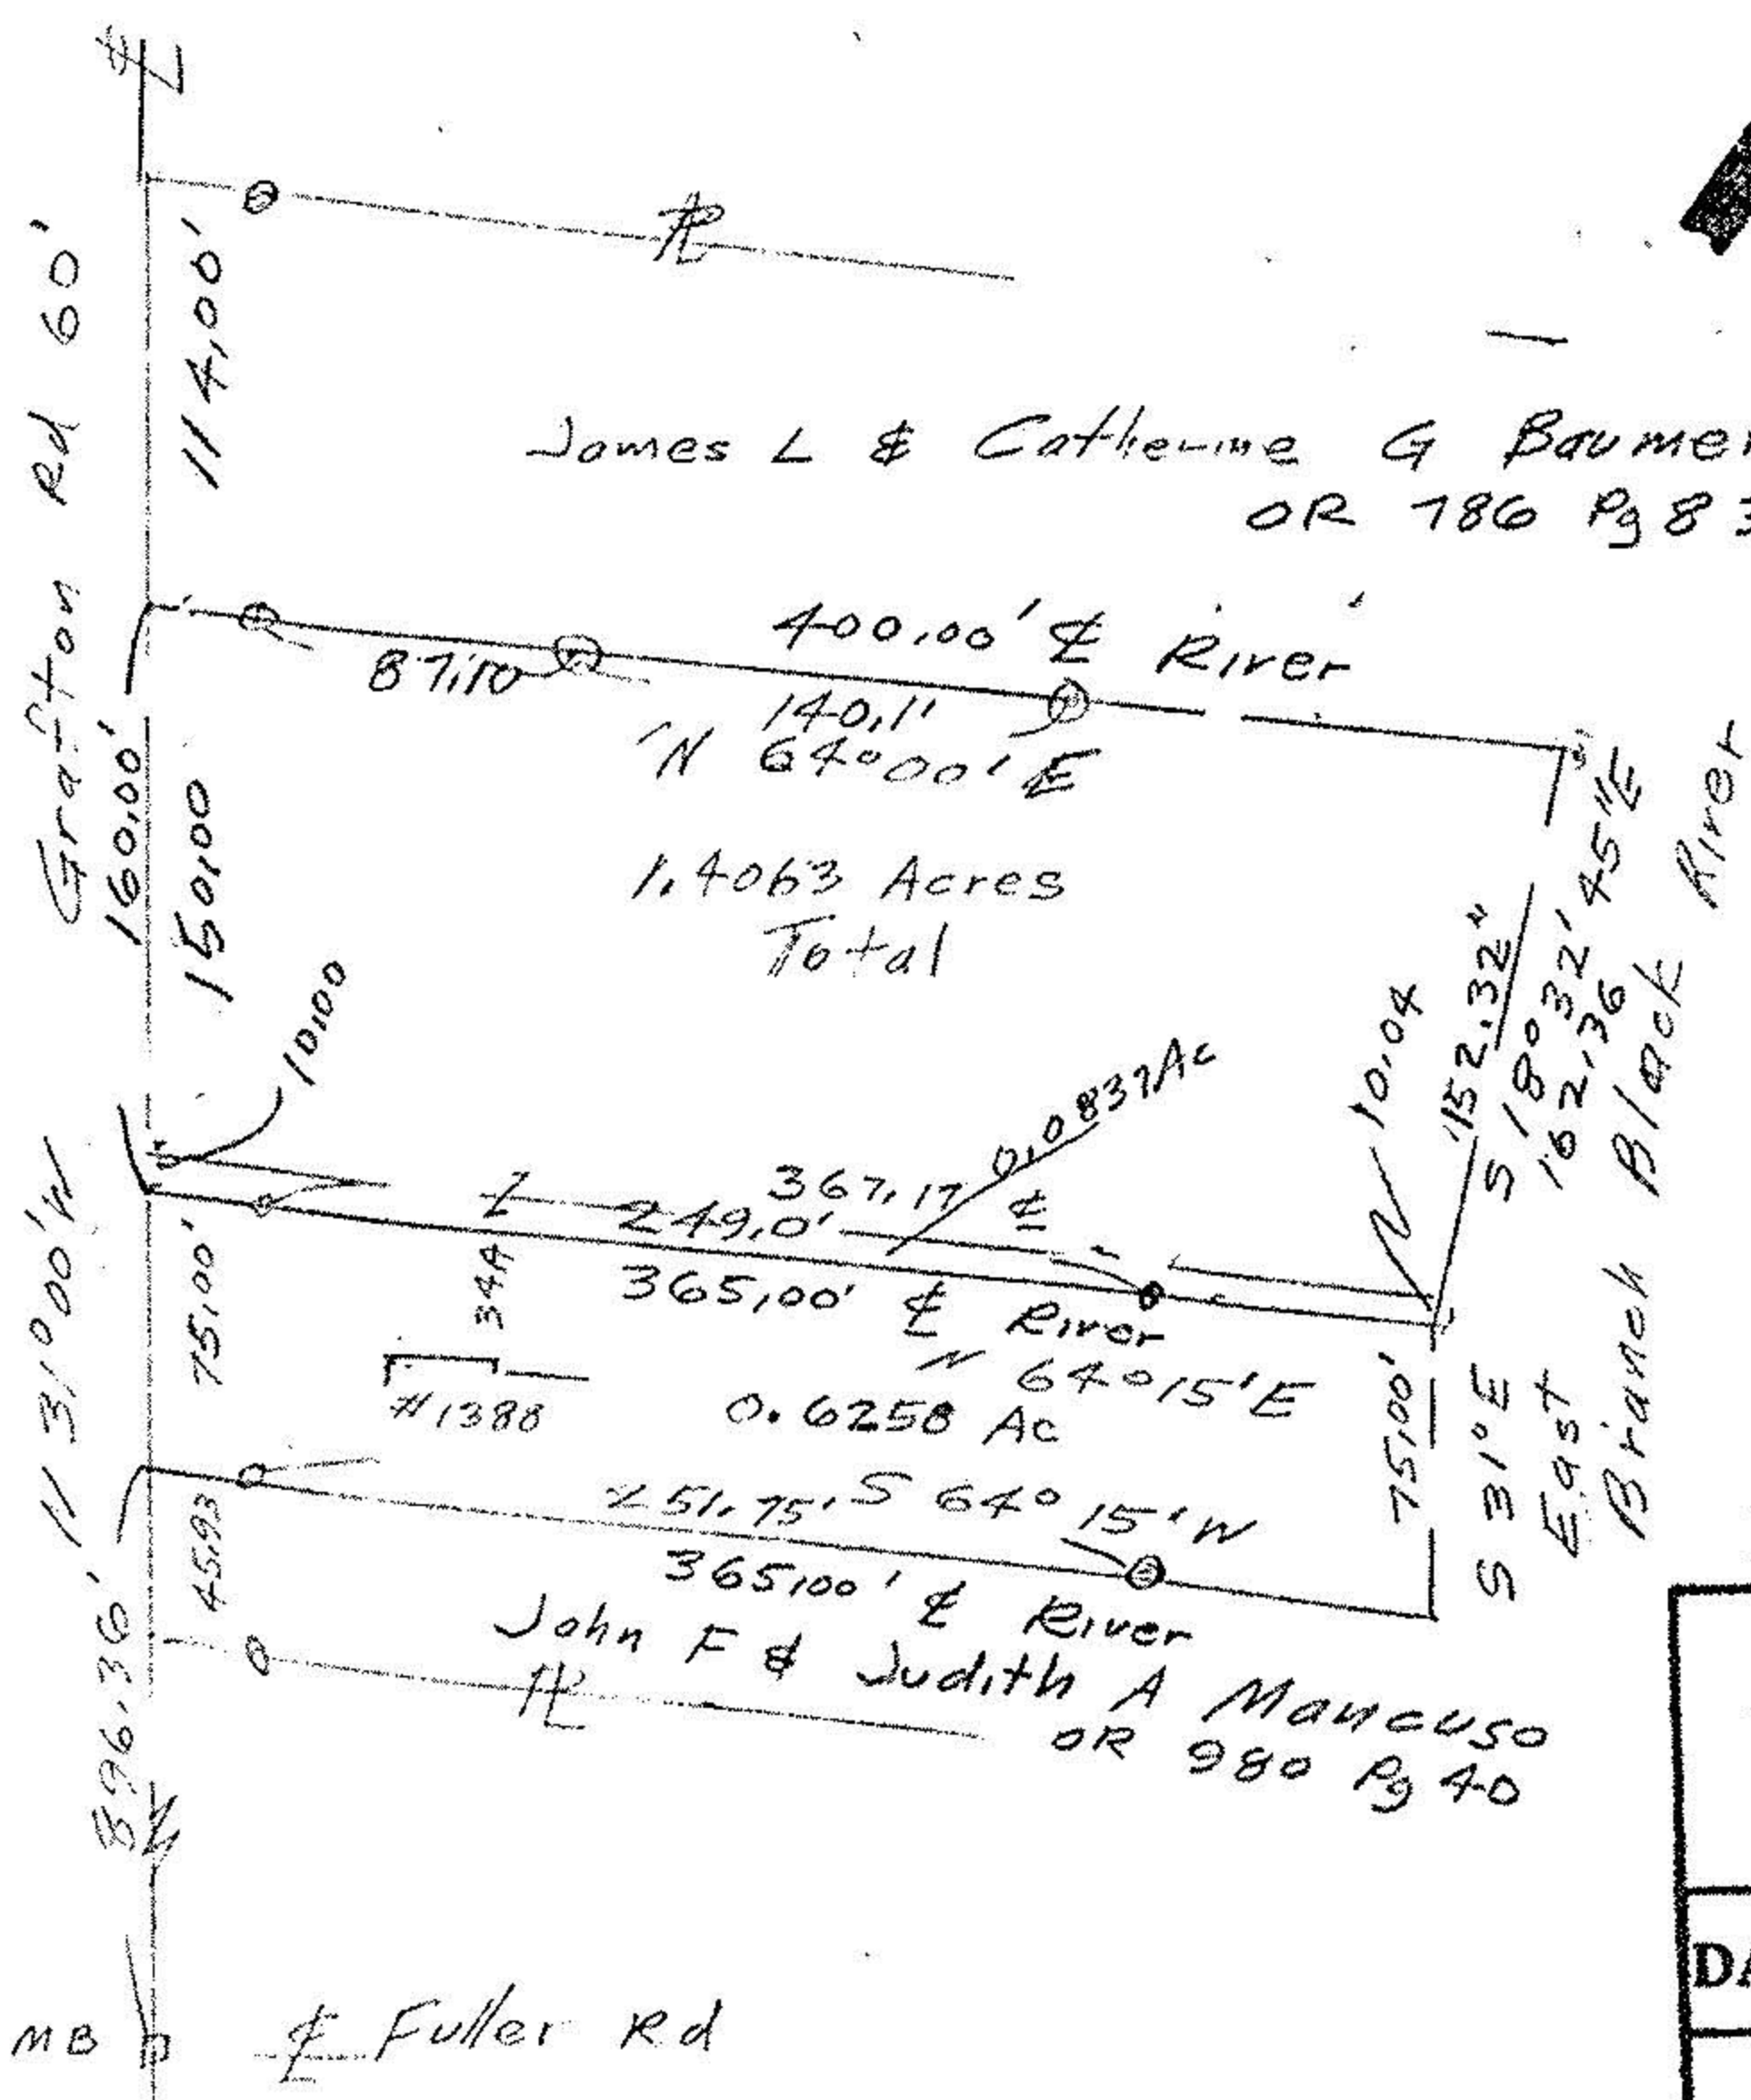 Grafton Rd 60'
114.00'
James L & Catherine G
OR 786 Pg 8
400.00' ℄ River
87.10
140.11
N 64°00' E
160.00'
150.00
1.4063 Acres
Total
10.00
10.04
152.32"
S 18°32'45"E
162.36
East Branch Black River
367.17 ℄
249.0'
365.00' ℄ River
N 64°15'E
N 31°00'W
75.00'
34A
#1388
0.6258 Ac
75.00'
S 31°E
251.75' S 64°15'W
365.00' ℄ River
45.93
John F & Judith A Mancuso
OR 980 Pg 40
896.36'
MB
℄ Fuller Rd